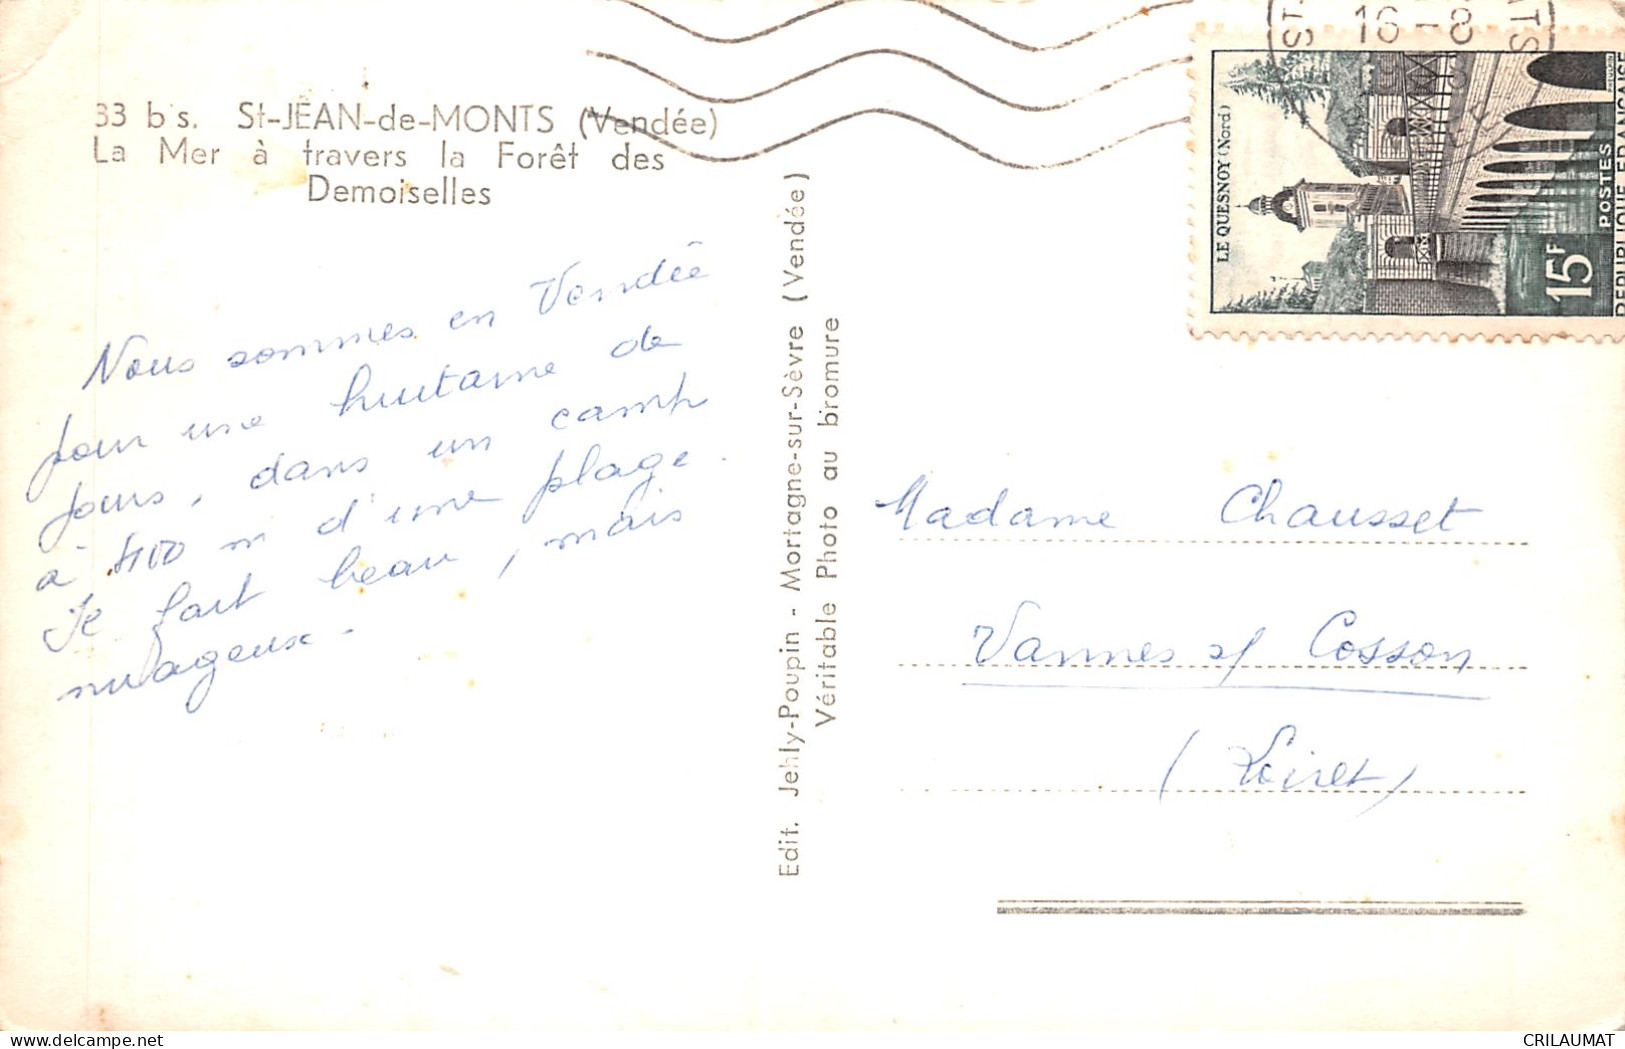 33 bis. St-JEAN-de-MONTS (Vendée)
La Mer à travers la Forêt des
Demoiselles
Nous sommes en Vendée
pour une huitaine de
jours, dans un camp
à 400 m d'une plage.
Il fait beau, mais
nuageux -
Edit. Jehly-Poupin - Mortagne-sur-Sèvre (Vendée)
Véritable Photo au bromure
LE QUESNOY (Nord)
15F
POSTES
REPUBLIQUE FRANÇAISE
Madame Chausset
Vannes s/ Cosson
(Loiret)
CRILAUMAT